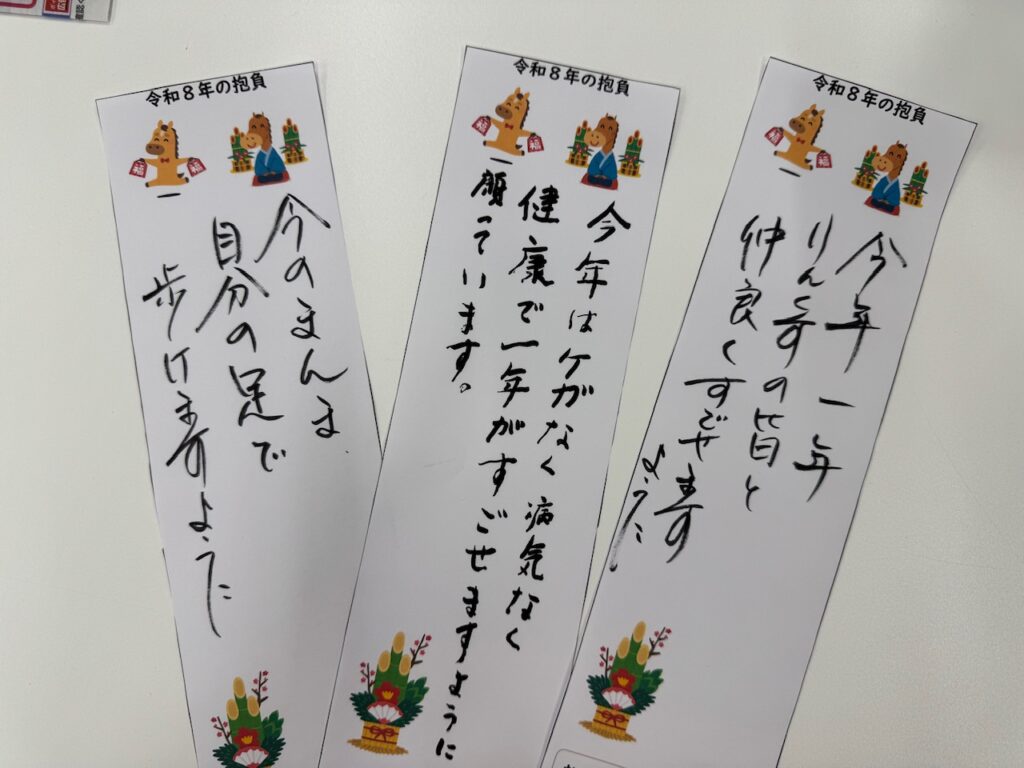 令和8年の抱負
福
福
今のまんま
自分の足で
歩けますように
令和8年の抱負
福
今年はケガなく病気なく
健康で一年がすごせますように
願っています。
令和8年の抱負
福
福
今年一年
りんくすの皆と
仲良くすごせます
ように